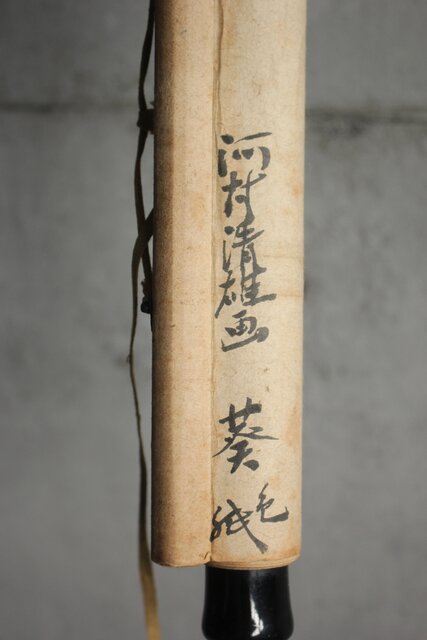 河村清雄画 葵 色紙